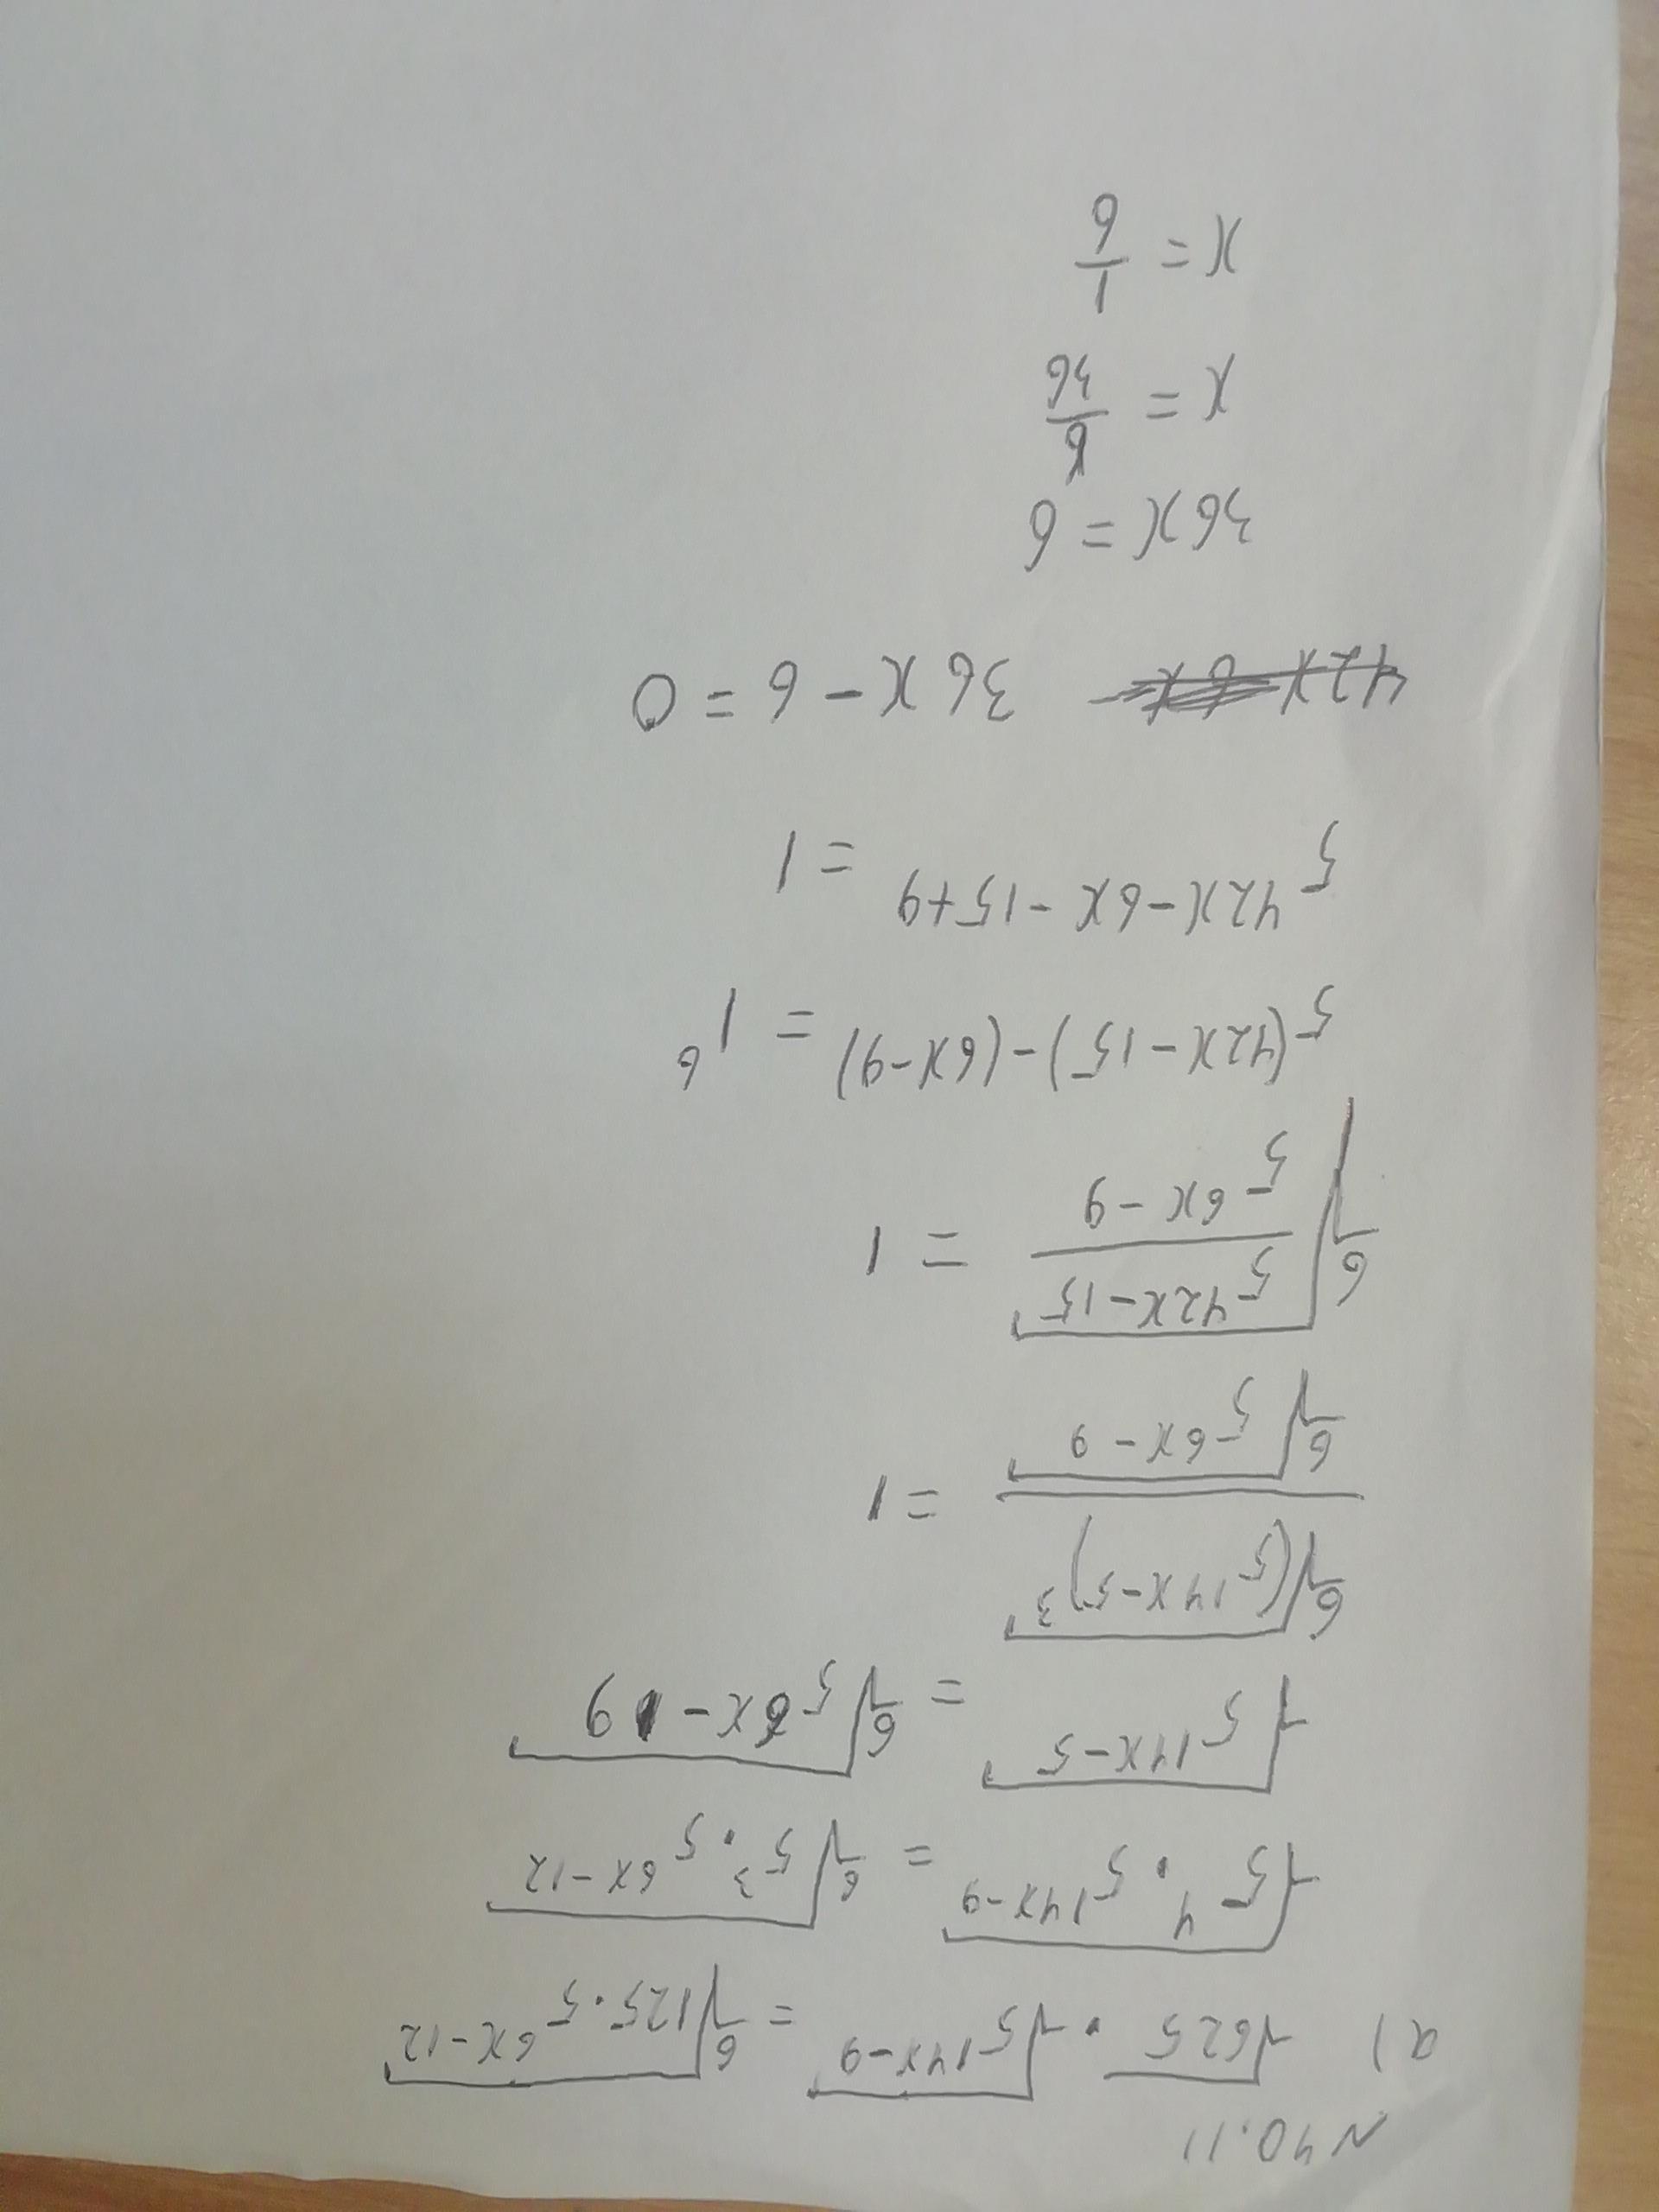 N40.11
a) √625 · √5^(14x-9) = ⁶√125·5^(6x-12)
√5^4 · 5^(14x-9) = ⁶√5^3 · 5^(6x-12)
√5^(14x-5) = ⁶√5^(6x-9)
⁶√(5^(14x-5))^3 / ⁶√5^(6x-9) = 1
⁶√(5^(42x-15) / 5^(6x-9)) = 1
5^((42x-15)-(6x-9)) = 1^6
5^(42x-6x-15+9) = 1
36x-6=0
36x=6
x = 6/36
x = 1/6